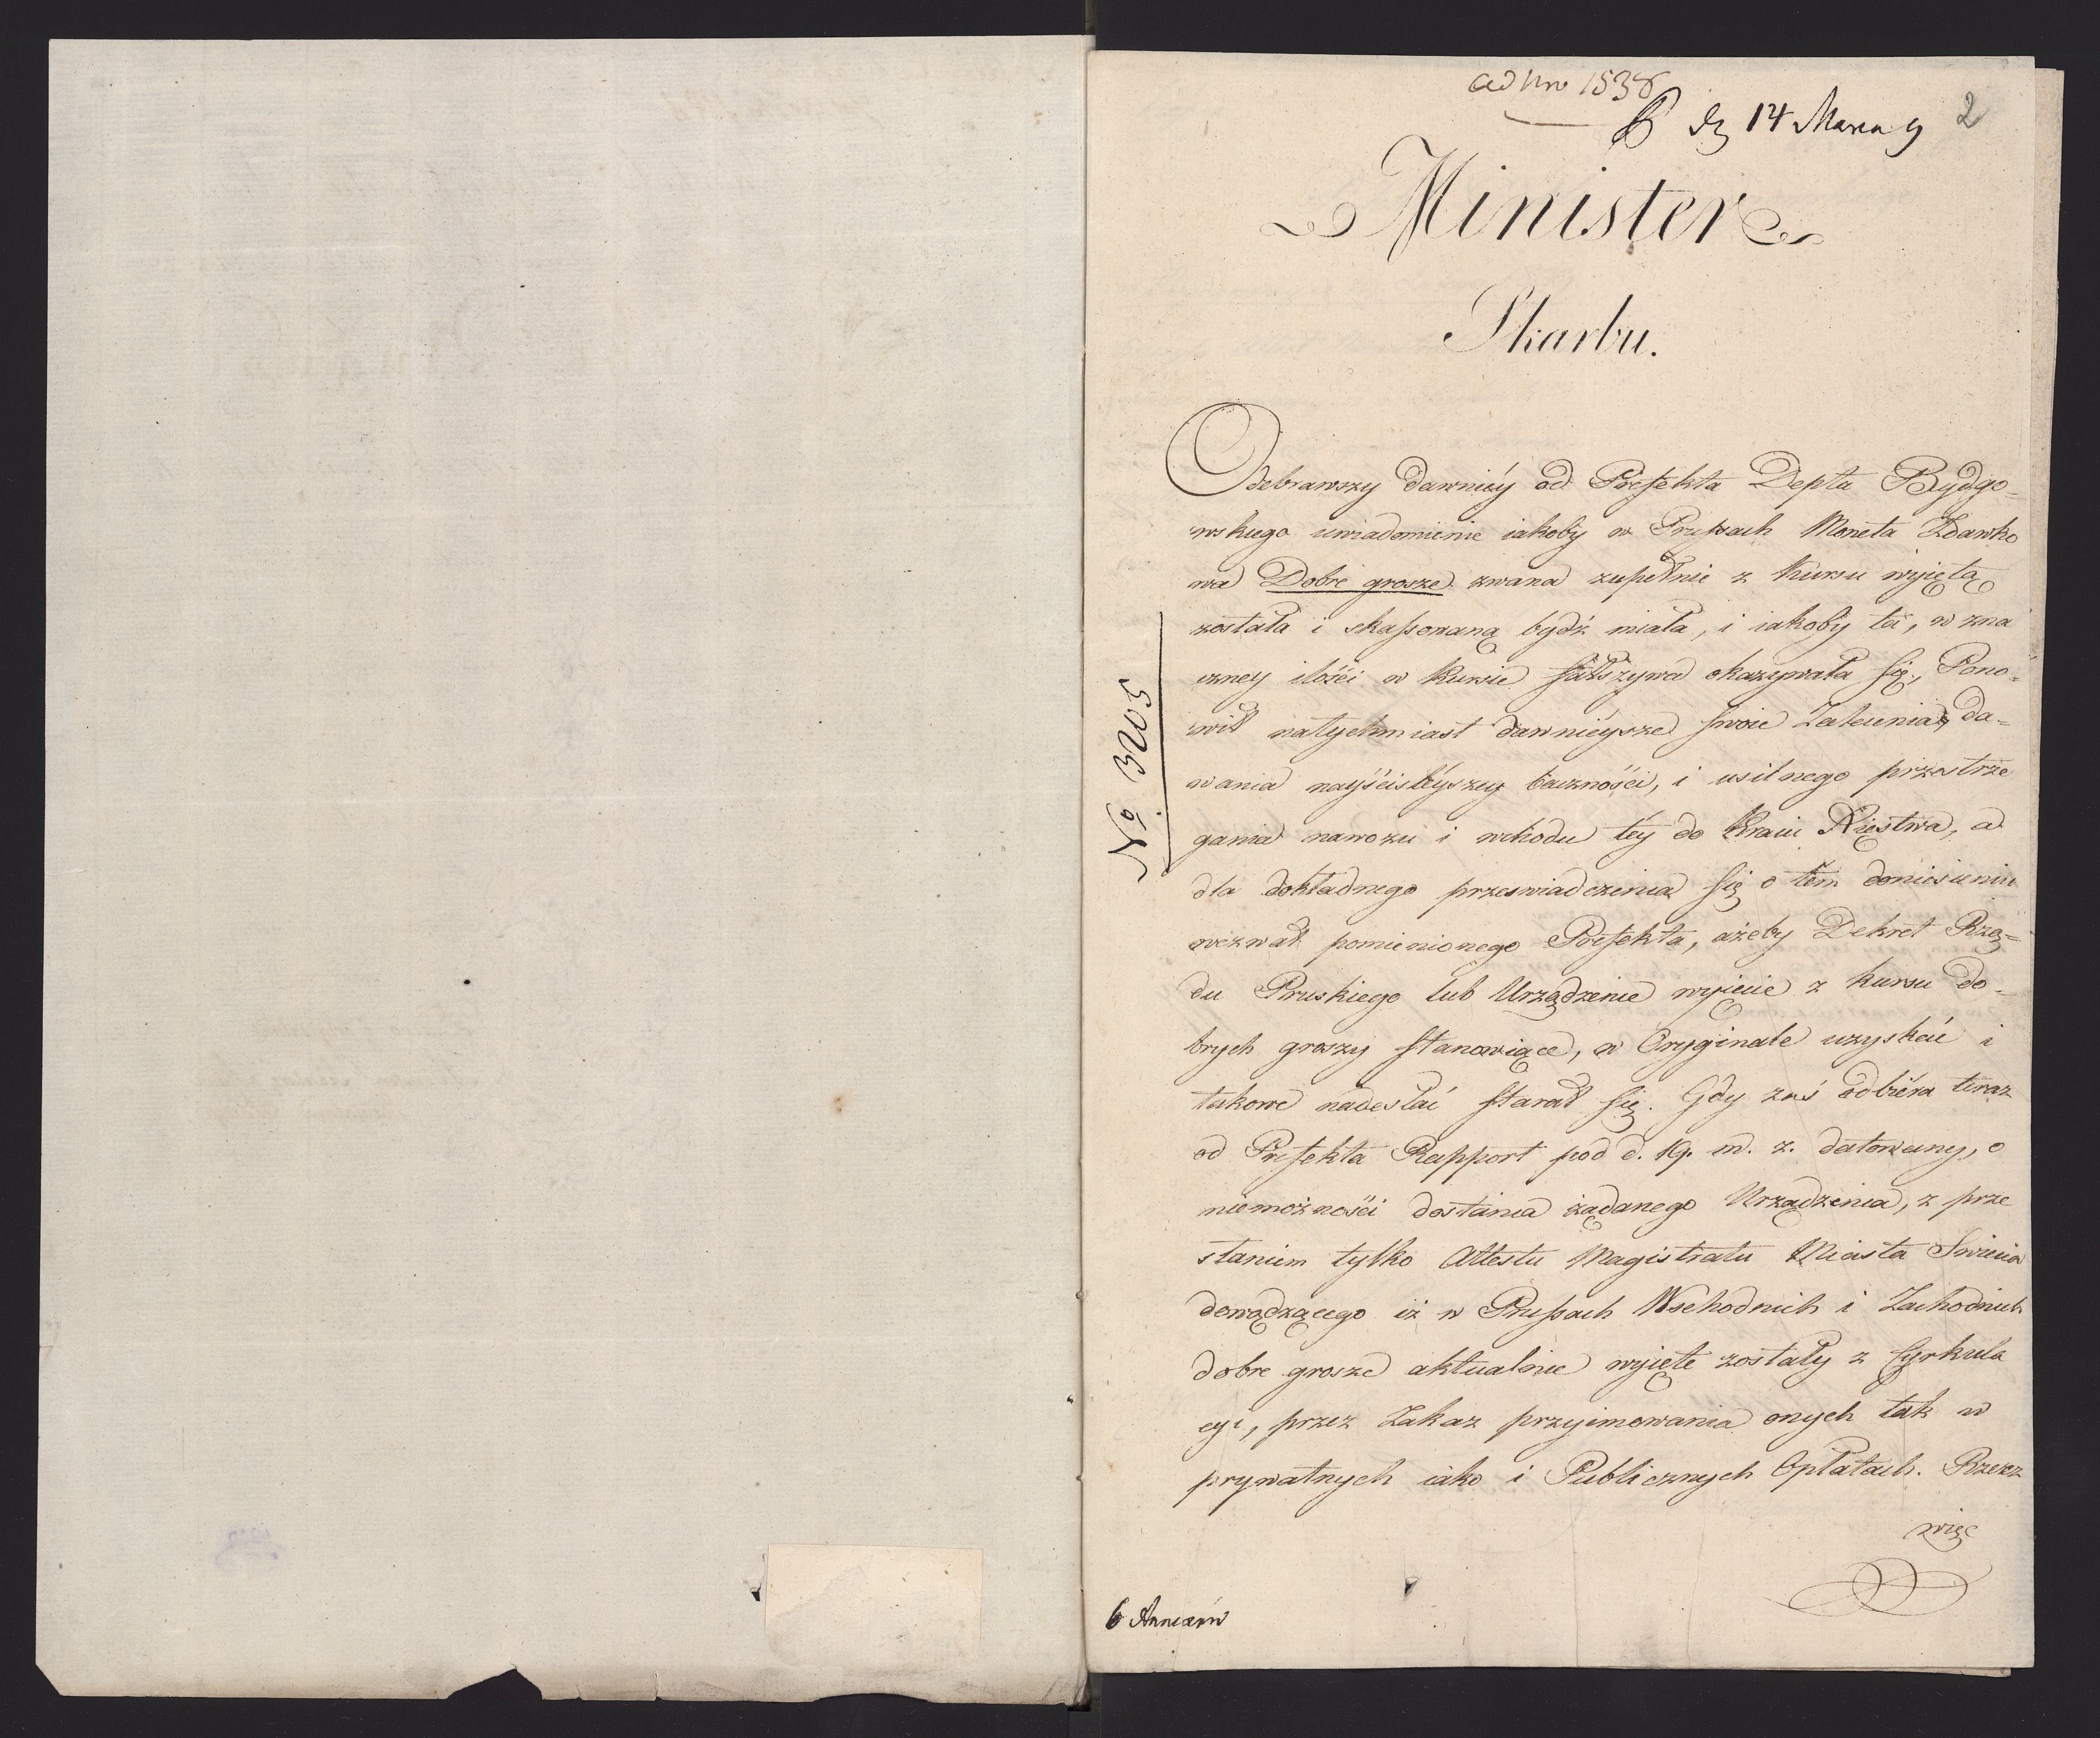 ad Nro 1538
14 Marca 9
2
Minister
Skarbu.
No 3205
Odebrawszy dawniéy od Prefekta Depttu Bydgo-
wskiego uwiadomienie iakoby w Prussach Moneta Zdawko
wa Dobre grosze zwana zupełnie z Kursu wyiętą
została i skassowaną bydź miała, i iakoby téż, w zna
czney ilości w Kursie fałszywa okazywała się, Pono-
wił natychmiast dawnieysze swoie Zalecenia da-
wania nayściśléyszey baczności, i usilnego przestrze
gania nawozu i wchodu téy do Kraiu Xięstwa, a
dla dokładnego przeswiadczenia się o tém doniesieniu
wezwał pomienionego Prefekta, ażeby Dekret Rzą-
du Pruskiego lub Urządzenie wyięcie z kursu do-
brych groszy stanowiące, w Oryginale uzyskać i
takowe nadesłać starał się. Gdy zaś odbiéra teraz
od Prefekta Rapport pod d. 19. m. z. datowany, o
niemożności dostania żądanego Urządzenia, z prze
słaniem tylko Attestu Magistratu Miasta Swiecia
dowodzącego iż w Prussach Wschodnich i Zachodnich
dobre grosze aktualnie wyięte zostały z Cyrkula
cyi, przez Zakaz przyimowania onych tak w
prywatnych iako i Publicznych Opłatach. Rzecz
więc
6 Annexów